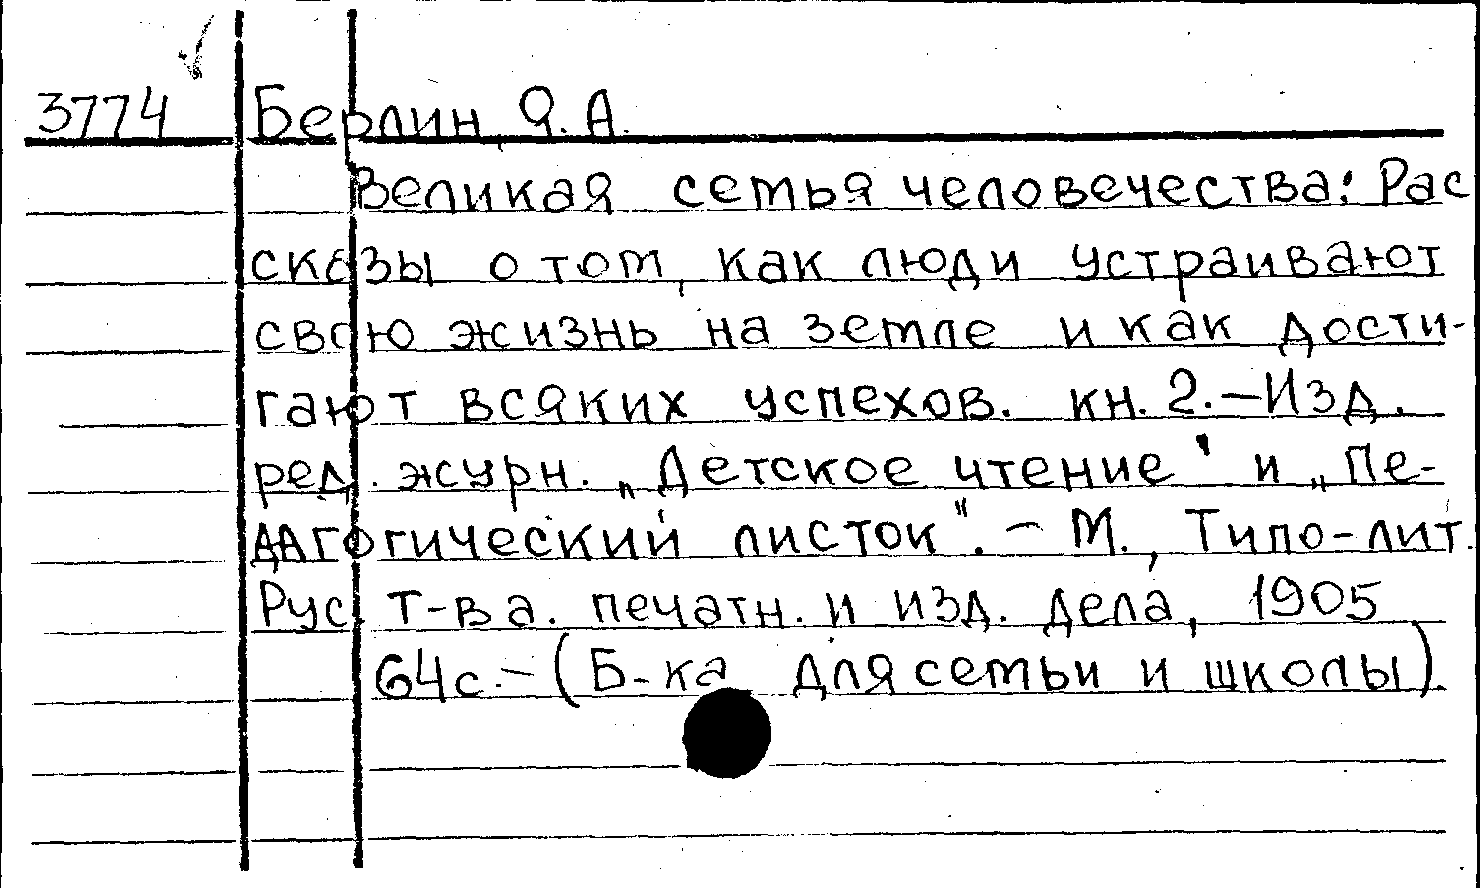 3774 Берлин, Я. А.
Великая семья человечества: Рас
сказы о том, как люди устраивают
свою жизнь на земле и как дости-
гают всяких успехов. кн. 2. – Изд.
ред. журн. „Детское чтение" и „Пе-
дагогический листок". – М., Типо-лит.
Рус. т-ва. печатн. и изд. дела, 1905
64с. – (Б-ка для семьи и школы).